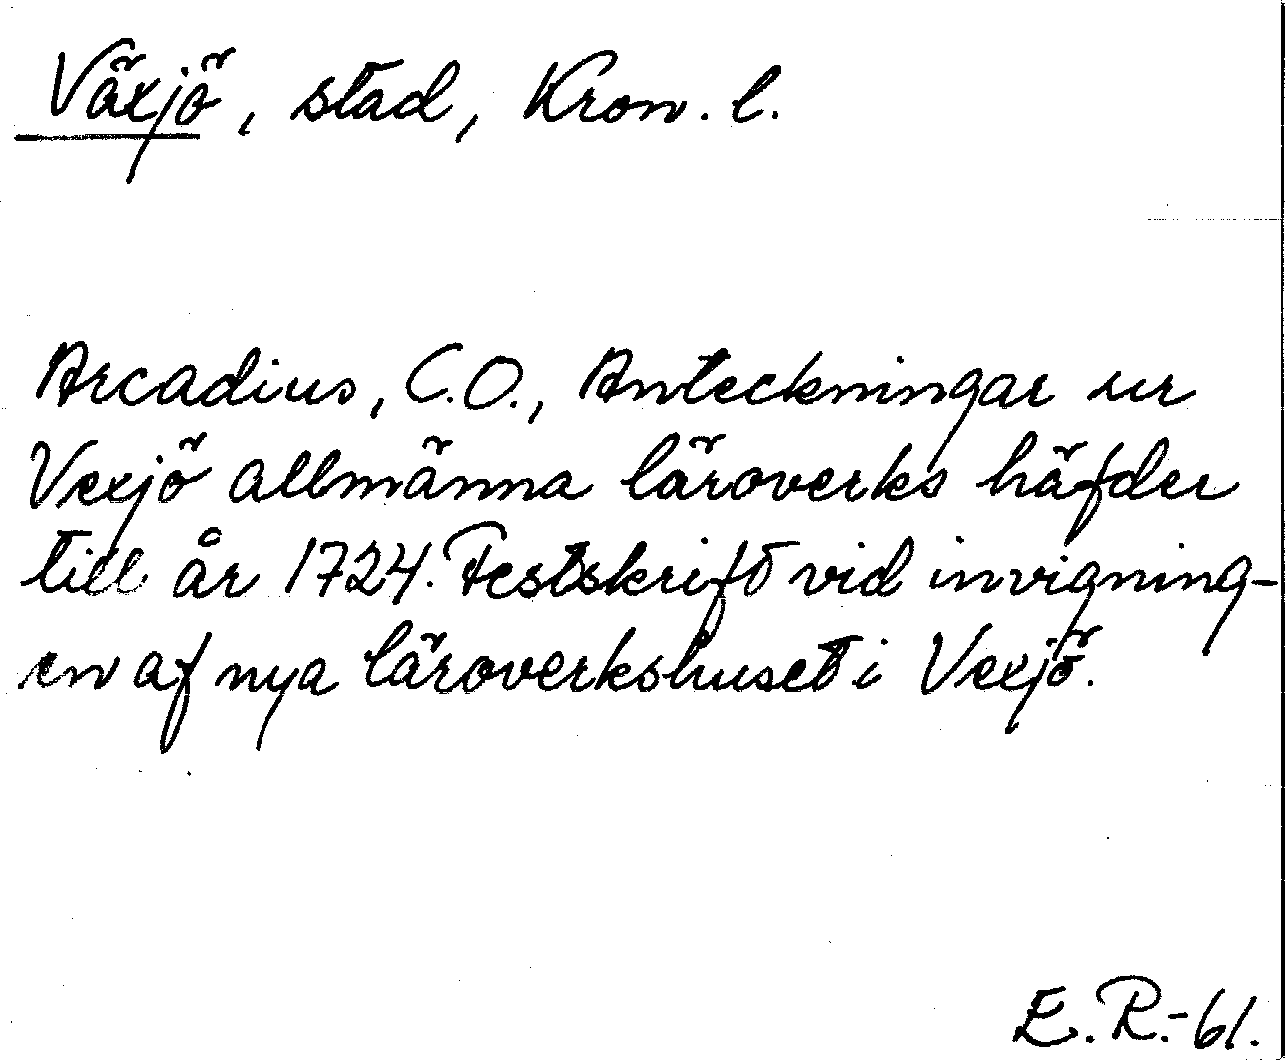 Växjö, stad, Kron. l.
Arcadius, C.O., Anteckningar ur
Vexjö allmänna läroverks häfder
till år 1724. Festskrift vid invigning-
en af nya läroverkshuset i Vexjö.
E.R.-61.